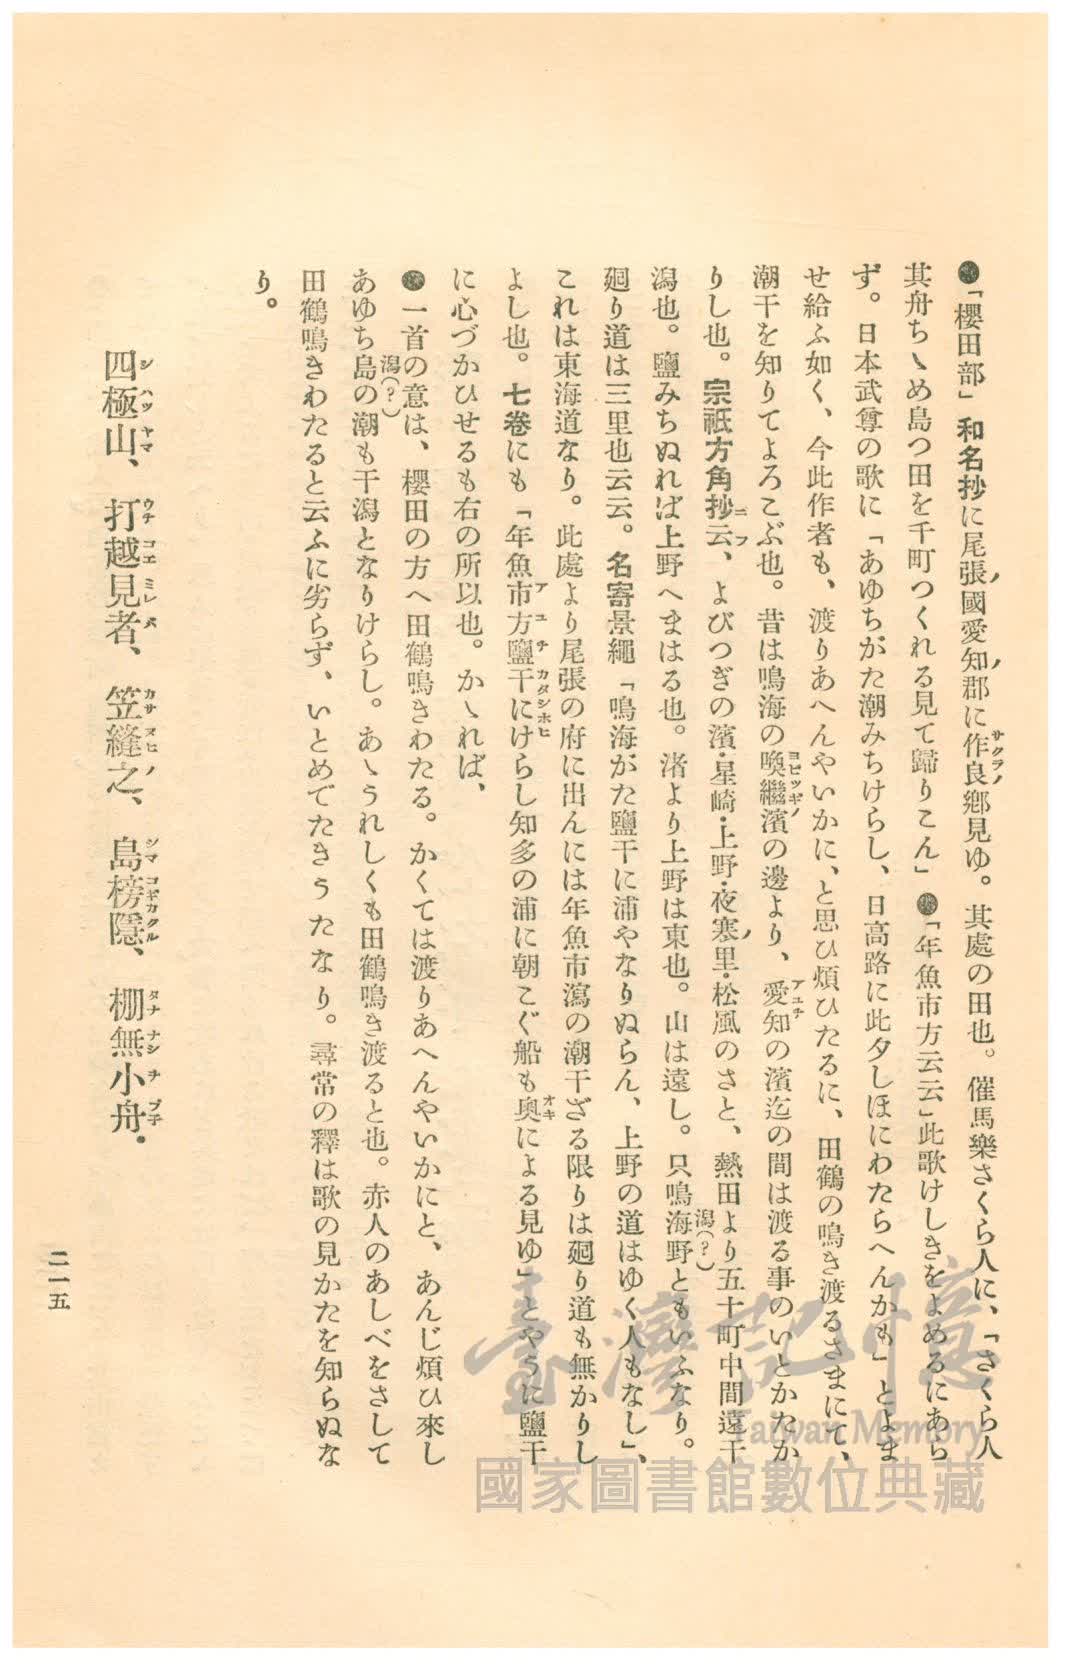 ●「櫻田部」和名抄に尾張ノ國愛知ノ郡に作良サクラノ郷見ゆ。其處の田也。催馬樂さくら人に、「さくら人
其舟ちゝめ島つ田を千町つくれる見て歸りこん」●「年魚市方云云」此歌けしきをよめるにあら
ず。日本武尊の歌に「あゆちがた潮みちけらし、日高路に此夕しほにわたらへんかも」とよま
せ給ふ如く、今此作者も、渡りあへんやいかに、と思ひ煩ひたるに、田鶴の鳴き渡るさまにて、
潮干を知りてよろこぶ也。昔は鳴海の喚繼ヨビツギノ濱の邊より、愛知アユチの濱迄の間は渡る事のいとかたか
りし也。宗祇方角抄ニ云フ、よびつぎの濱・星崎・上野・夜寒ノ里・松風のさと、熱田より五十町中間遠干
潟也。鹽みちぬれば上野へまはる也。渚より上野は東也。山は遠し。只鳴海野潟(?)ともいふなり。
廻り道は三里也云云。名寄景繩「鳴海がた鹽干に浦やなりぬらん、上野の道はゆく人もなし」、
これは東海道なり。此處より尾張の府に出んには年魚市瀉の潮干ざる限りは廻り道も無かりし
よし也。七卷にも「年魚市方アユチカタ鹽干シホヒにけらし知多の浦に朝こぐ船も奧オキによる見ゆ」とやうに鹽干
に心づかひせるも右の所以也。かゝれば、
●一首の意は、櫻田の方へ田鶴鳴きわたる。かくては渡りあへんやいかにと、あんじ煩ひ來し
あゆち島潟(?)の潮も干潟となりけらし。あゝうれしくも田鶴鳴き渡ると也。赤人のあしべをさして
田鶴鳴きわたると云ふに劣らず、いとめでたきうたなり。尋常の釋は歌の見かたを知らぬな
り。
四極山シハツヤマ、打越見者ウチコエミレバ、笠縫之カサヌヒノ、島榜隱シマコギカクル、棚無小舟タナナシヲブネ.
二一五
臺灣記憶
Taiwan Memory
國家圖書館數位典藏